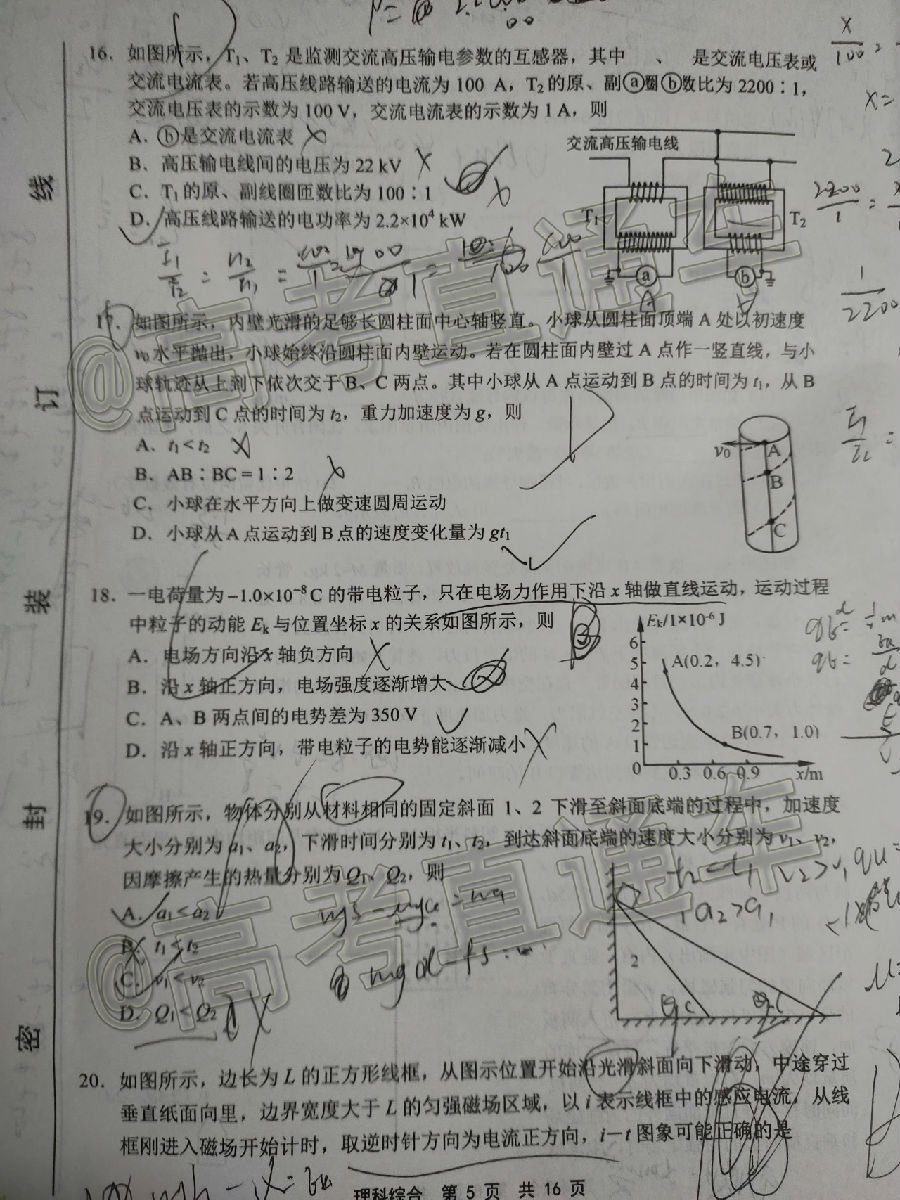 16. 如图所示，T₁、T₂ 是监测交流高压输电参数的互感器，其中 、 是交流电压表或
交流电流表。若高压线路输送的电流为 100 A，T₂的原、副ⓐ圈ⓑ数比为 2200∶1，
交流电压表的示数为 100 V，交流电流表的示数为 1 A，则
A. ⓑ是交流电流表
B. 高压输电线间的电压为 22 kV
C. T₁的原、副线圈匝数比为 100∶1
D. 高压线路输送的电功率为 2.2×10⁴ kW
交流高压输电线
T₁
T₂
ⓐ
ⓑ
x/100 =
x=
2200/1 =
1/2200
I₁/I₂ = n₂/n₁ =
A
V
17. 如图所示，内壁光滑的足够长圆柱面中心轴竖直。小球从圆柱面顶端 A 处以初速度
v₀水平抛出，小球始终沿圆柱面内壁运动。若在圆柱面内壁过 A 点作一竖直线，与小
球轨迹从上到下依次交于 B、C 两点。其中小球从 A 点运动到 B 点的时间为 t₁，从 B
点运动到 C 点的时间为 t₂，重力加速度为 g，则
A. t₁<t₂
B. AB∶BC=1∶2
C. 小球在水平方向上做变速圆周运动
D. 小球从 A 点运动到 B 点的速度变化量为 gt₁
v₀
A
B
C
I₁/I₂ =
18. 一电荷量为 −1.0×10⁻⁸ C 的带电粒子，只在电场力作用下沿 x 轴做直线运动，运动过程
中粒子的动能 Eₖ 与位置坐标 x 的关系如图所示，则
A. 电场方向沿 x 轴负方向
B. 沿 x 轴正方向，电场强度逐渐增大
C. A、B 两点间的电势差为 350 V
D. 沿 x 轴正方向，带电粒子的电势能逐渐减小
Eₖ/1×10⁻⁶ J
6
5
4
3
2
1
0
A(0.2，4.5)
B(0.7，1.0)
0.3 0.6 0.9 x/m
19. 如图所示，物体分别从材料相同的固定斜面 1、2 下滑至斜面底端的过程中，加速度
大小分别为 a₁、a₂，下滑时间分别为 t₁、t₂，到达斜面底端的速度大小分别为 v₁、v₂，
因摩擦产生的热量分别为 Q₁、Q₂，则
A. a₁<a₂
B. t₁<t₂
C. v₁<v₂
D. Q₁<Q₂
a₂>a₁
2
20. 如图所示，边长为 L 的正方形线框，从图示位置开始沿光滑斜面向下滑动，中途穿过
垂直纸面向里，边界宽度大于 L 的匀强磁场区域，以 i 表示线框中的感应电流，从线
框刚进入磁场开始计时，取逆时针方向为电流正方向，i—t 图象可能正确的是
理科综合 第 5 页 共 16 页
线
订
装
封
密
@高考直通车
@高考直通车